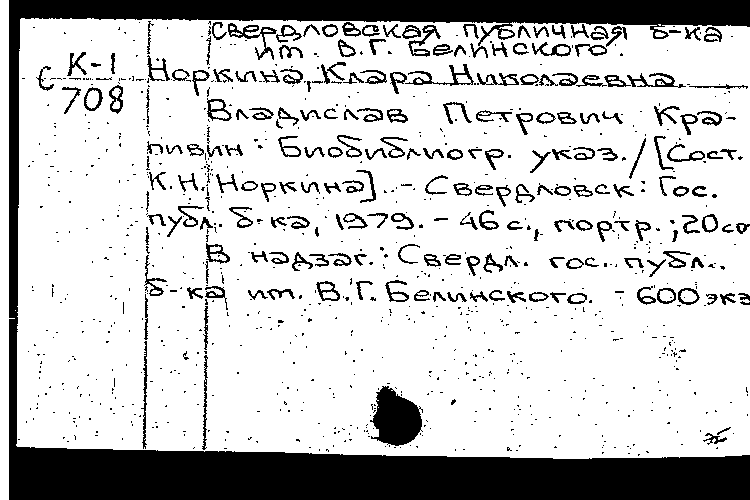 Свердловская публичная б-ка
им. В.Г. Белинского.
с К-1
708
Норкина, Клара Николаевна.
Владислав Петрович Кра-
пивин : Библиогр. указ. / [Сост.
К.Н. Норкина]. - Свердловск : Гос.
публ. б-ка, 1979. - 46 с., портр. ; 20 см
В надзаг.: Свердл. гос. публ.
б-ка им. В.Г. Белинского. - 600 экз